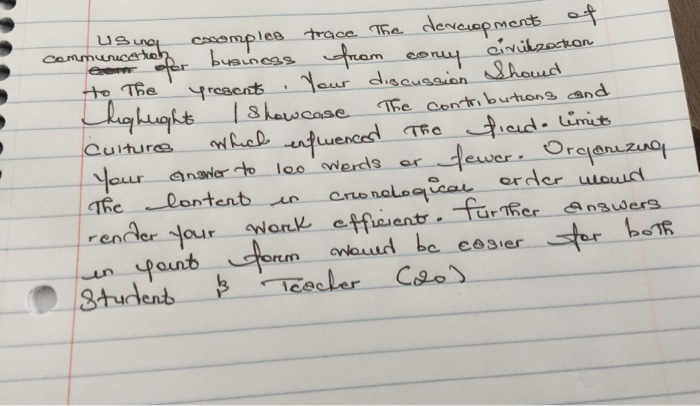 Using examples trace The development of
communication for business from early civilization
to The present. Your discussion Should
highlight / Showcase The contributions and
Cultures which influenced The field. Limit
Your answer to 100 words or fewer. Organizing
The Content in cronological order would
render your work efficient. Further answers
in point form would be easier for both
Student & Teacher (20)